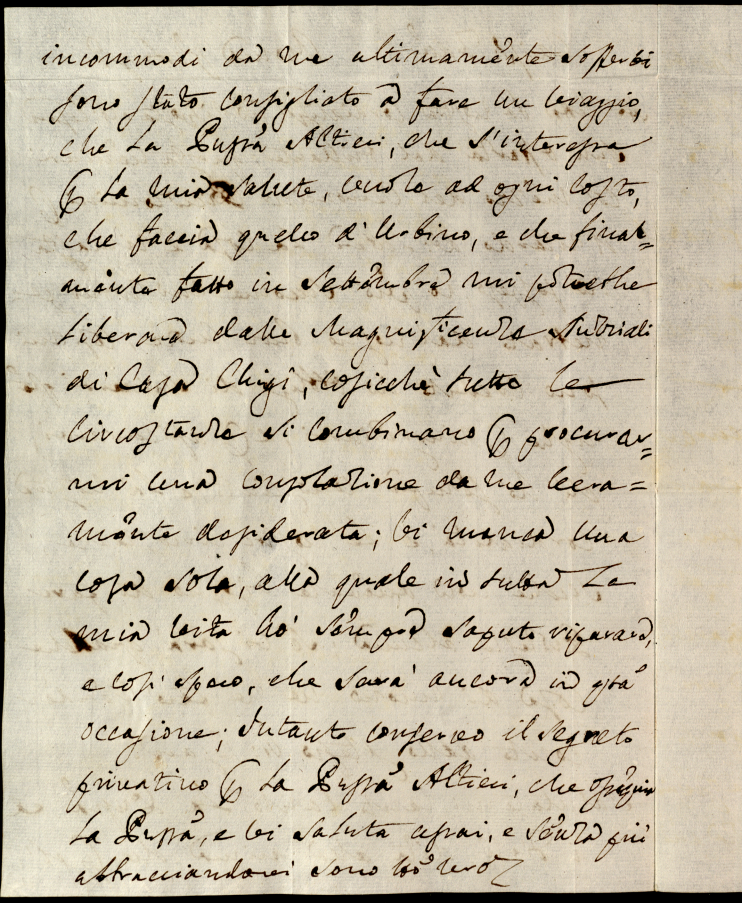 incommodi da me ultimamente sofferti
sono stato consigliato a fare un viaggio,
che La Pnssã Altieri, che s'interessa
p La mia salute, vuole ad ogni costo,
che faccia quello d'Urbino, e che final=
mente fatto in Settembre mi potrebbe
liberare dalle Magnificenze Nuziali
di Casa Chigi, cosicchè tutte le
Circostanze si combinano p procurar=
mi una consolazione da me vera=
mente desiderata; vi manca una
cosa sola, alla quale in tutta La
mia vita hò sempre saputo riparare,
e così spero, che sarà ancora in qta
occasione; Intanto conservo il segreto
p La Pnssã Altieri, che
La Pnssã, e vi saluta assai, e senza più
abbracciandovi sono